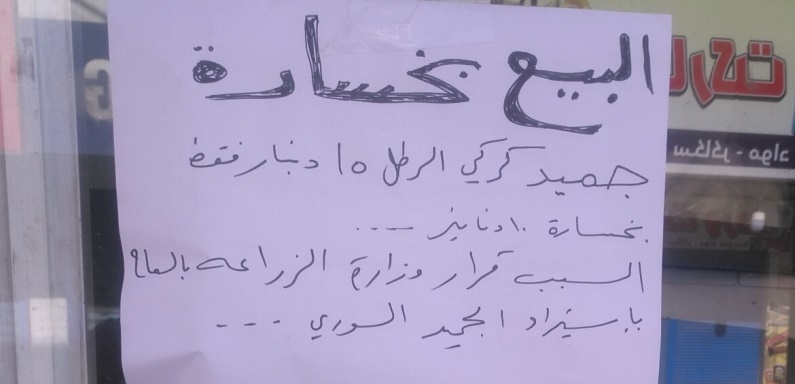 البيع بخسارة
جميد كركي الرطل ١٥ دينار فقط
بخسارة ١٠ دنانير ....
السبب قرار وزارة الزراعه بالسماح
بإستيراد الجميد السوري ....
سكاكر - مواد